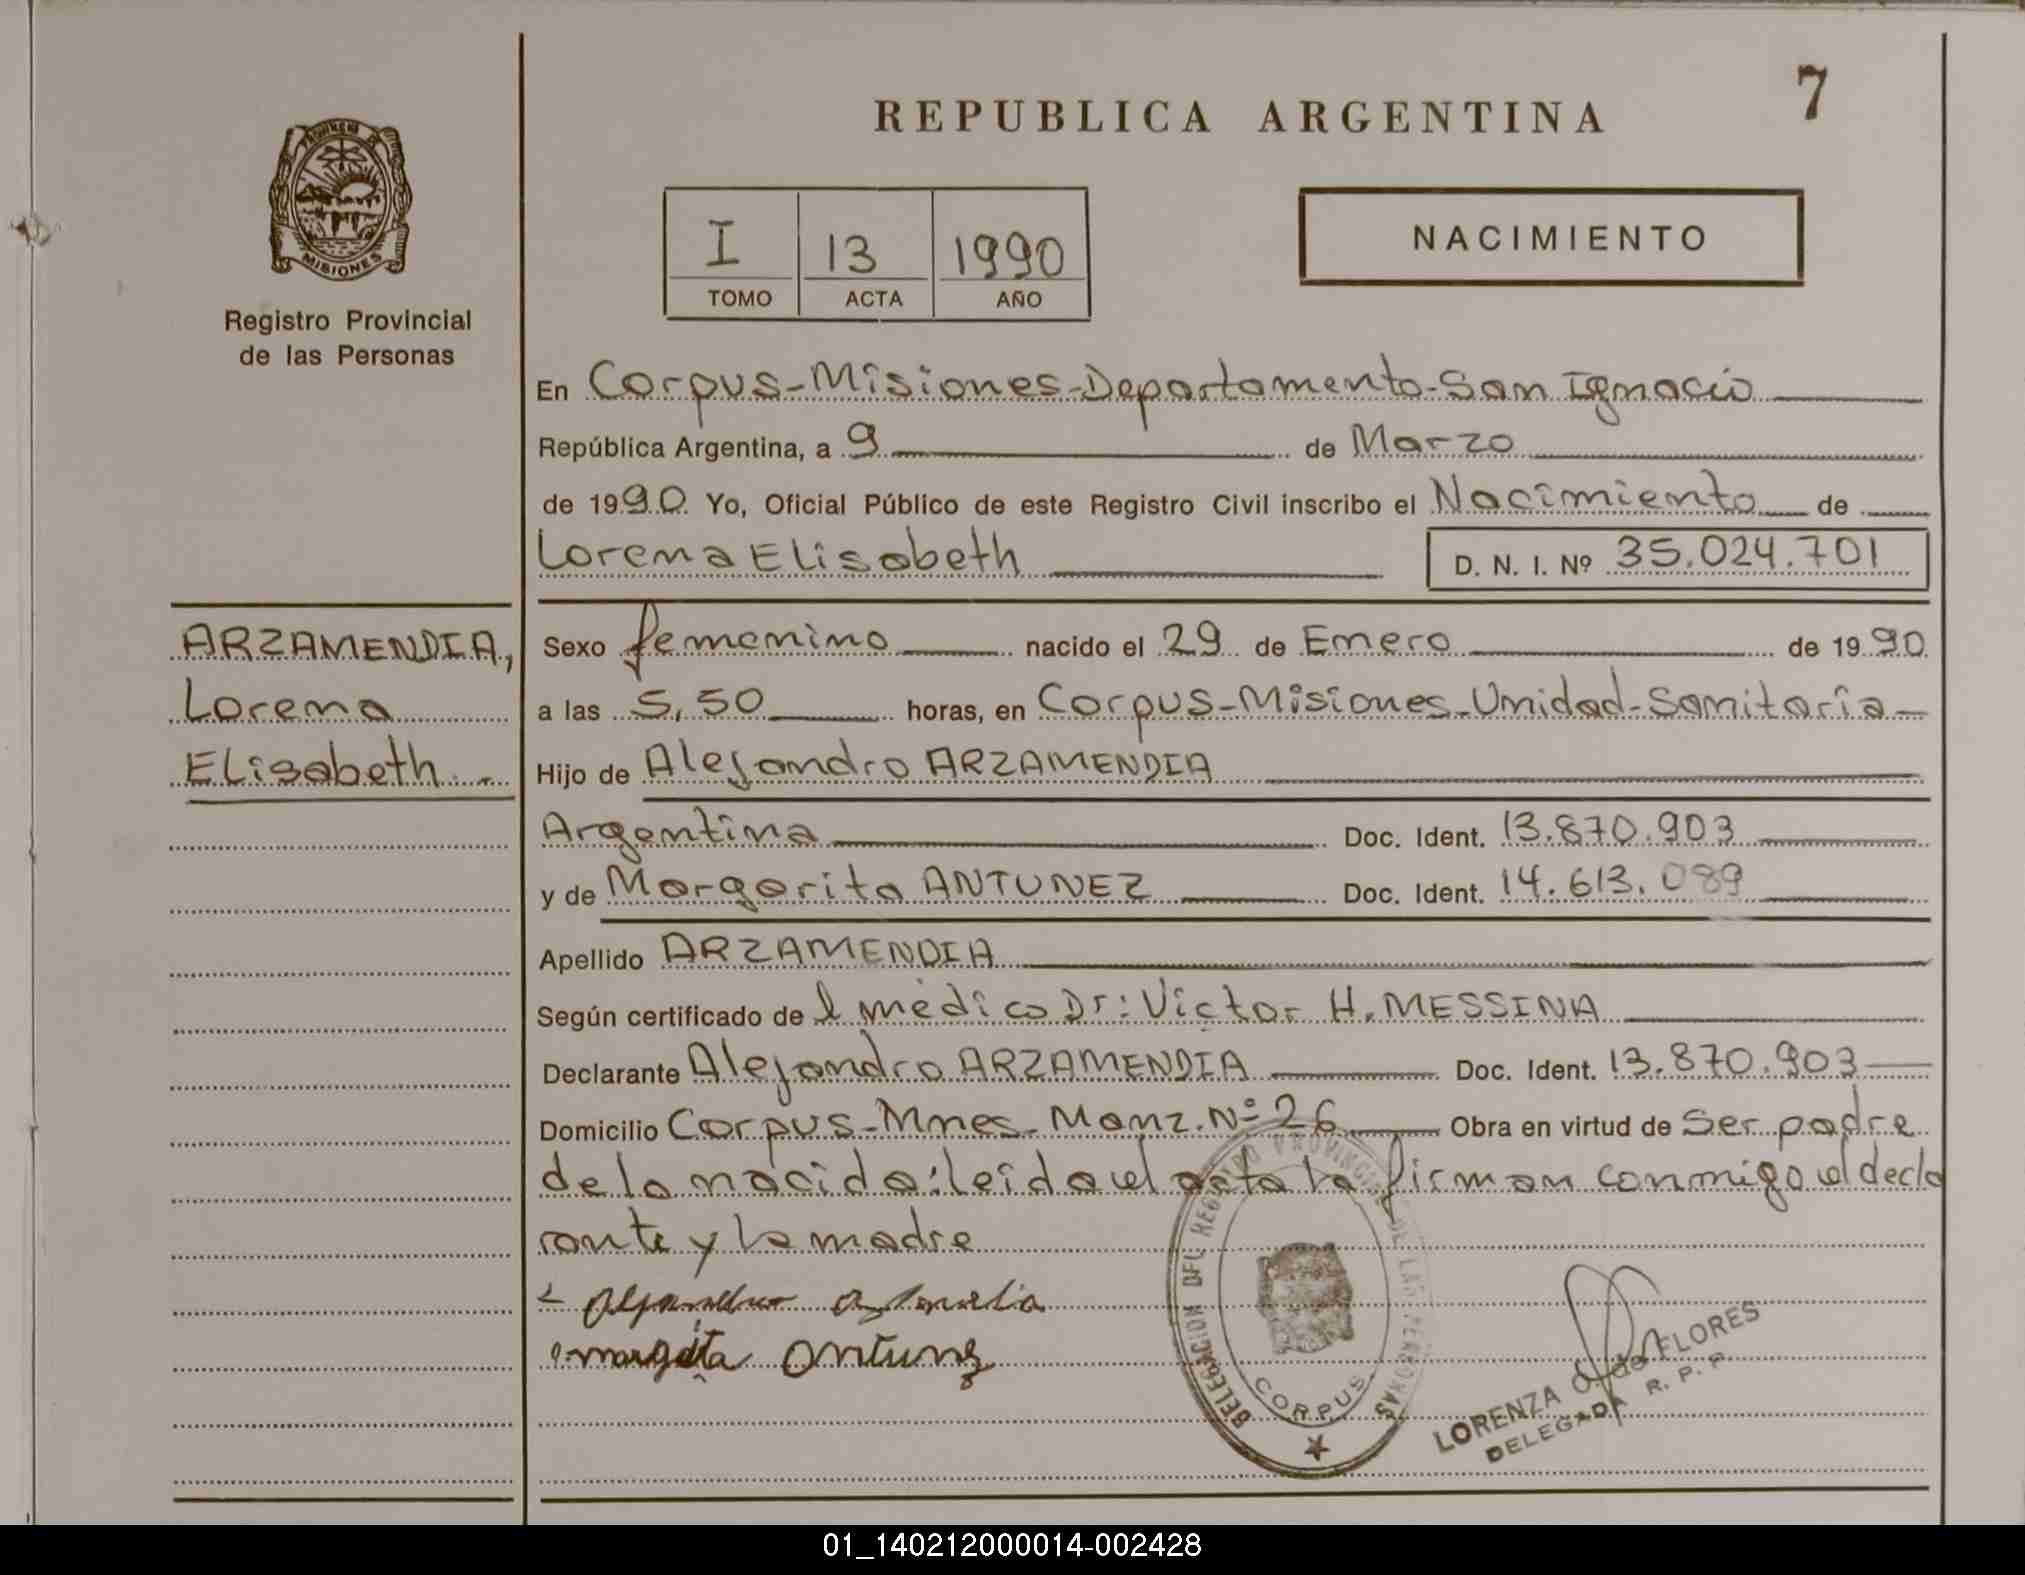 7
REPUBLICA ARGENTINA
PROVINCIA DE
MISIONES
I 13 1990
TOMO ACTA AÑO
NACIMIENTO
Registro Provincial
de las Personas
En Corpus-Misiones-Departamento-San Ignacio
República Argentina, a 9 de Marzo
de 1990 Yo, Oficial Público de este Registro Civil inscribo el Nacimiento de
Lorena Elisabeth D. N. I. Nº 35.024.701
ARZAMENDIA,
Lorena
Elisabeth.-
Sexo femenino nacido el 29 de Enero de 1990
a las 5,50 horas, en Corpus-Misiones-Unidad-Sanitaria-
Hijo de Alejandro ARZAMENDIA
Argentina Doc. Ident. 13.870.903
y de Margarita ANTUNEZ Doc. Ident. 14.613.089
Apellido ARZAMENDIA
Según certificado de l médico Dr: Victor H. MESSINA
Declarante Alejandro ARZAMENDIA Doc. Ident. 13.870.903
Domicilio Corpus-Mnes-Manz.Nº 26 Obra en virtud de Ser padre
de la nacida: leida el acta la firman conmigo el decla
rante y la madre
margita antunez
DELEGACION DEL REGISTRO PROVINCIAL DE LAS PERSONAS
CORPUS
LORENZA O. de FLORES
DELEGADA R. P. P.
01_140212000014-002428